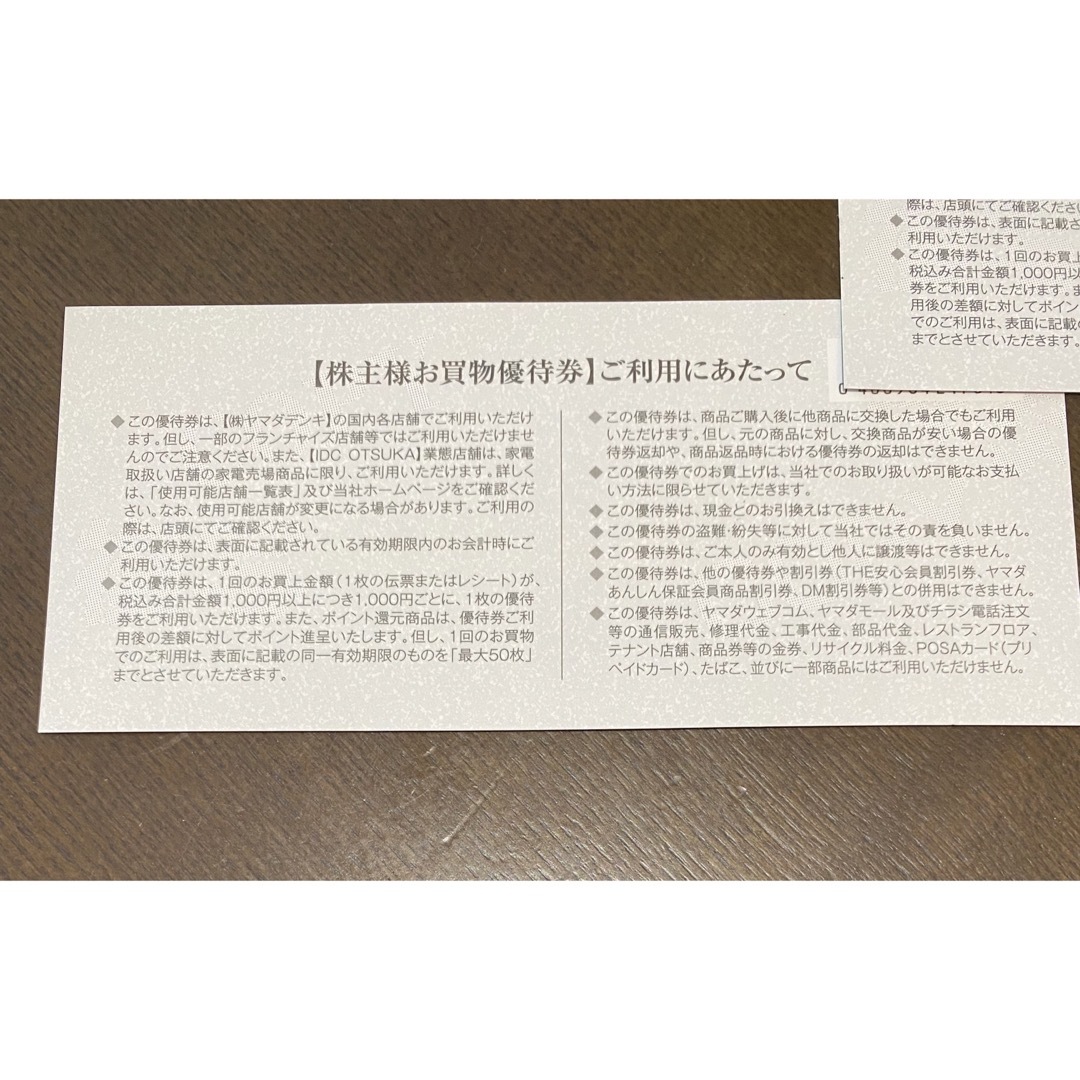 【株主様お買物優待券】ご利用にあたって
◆この優待券は、【㈱ヤマダデンキ】の国内各店舗でご利用いただけ
ます。但し、一部のフランチャイズ店舗等ではご利用いただけませ
んのでご注意ください。また、【IDC OTSUKA】業態店舗は、家電
取扱い店舗の家電売場商品に限り、ご利用いただけます。詳しく
は、「使用可能店舗一覧表」及び当社ホームページをご確認くだ
さい。なお、使用可能店舗が変更になる場合があります。ご利用の
際は、店頭にてご確認ください。
◆この優待券は、表面に記載されている有効期限内のお会計時にご
利用いただけます。
◆この優待券は、1回のお買上金額（1枚の伝票またはレシート）が、
税込み合計金額1,000円以上につき1,000円ごとに、1枚の優待
券をご利用いただけます。また、ポイント還元商品は、優待券ご利
用後の差額に対してポイント進呈いたします。但し、1回のお買物
でのご利用は、表面に記載の同一有効期限のものを「最大50枚」
までとさせていただきます。
◆この優待券は、商品ご購入後に他商品に交換した場合でもご利用
いただけます。但し、元の商品に対し、交換商品が安い場合の優
待券返却や、商品返品時における優待券の返却はできません。
◆この優待券でのお買上げは、当社でのお取り扱いが可能なお支払
い方法に限らせていただきます。
◆この優待券は、現金とのお引換えはできません。
◆この優待券の盗難・紛失等に対して当社ではその責を負いません。
◆この優待券は、ご本人のみ有効とし他人に譲渡等はできません。
◆この優待券は、他の優待券や割引券（THE安心会員割引券、ヤマダ
あんしん保証会員商品割引券、DM割引券等）との併用はできません。
◆この優待券は、ヤマダウェブコム、ヤマダモール及びチラシ電話注文
等の通信販売、修理代金、工事代金、部品代金、レストランフロア、
テナント店舗、商品券等の金券、リサイクル料金、POSAカード（プリ
ペイドカード）、たばこ、並びに一部商品にはご利用いただけません。
際は、店頭にてご確認くださ
◆この優待券は、表面に記載さ
利用いただけます。
◆この優待券は、1回のお買上
税込み合計金額1,000円以
券をご利用いただけます。
用後の差額に対してポイン
でのご利用は、表面に記載の
までとさせていただきます。